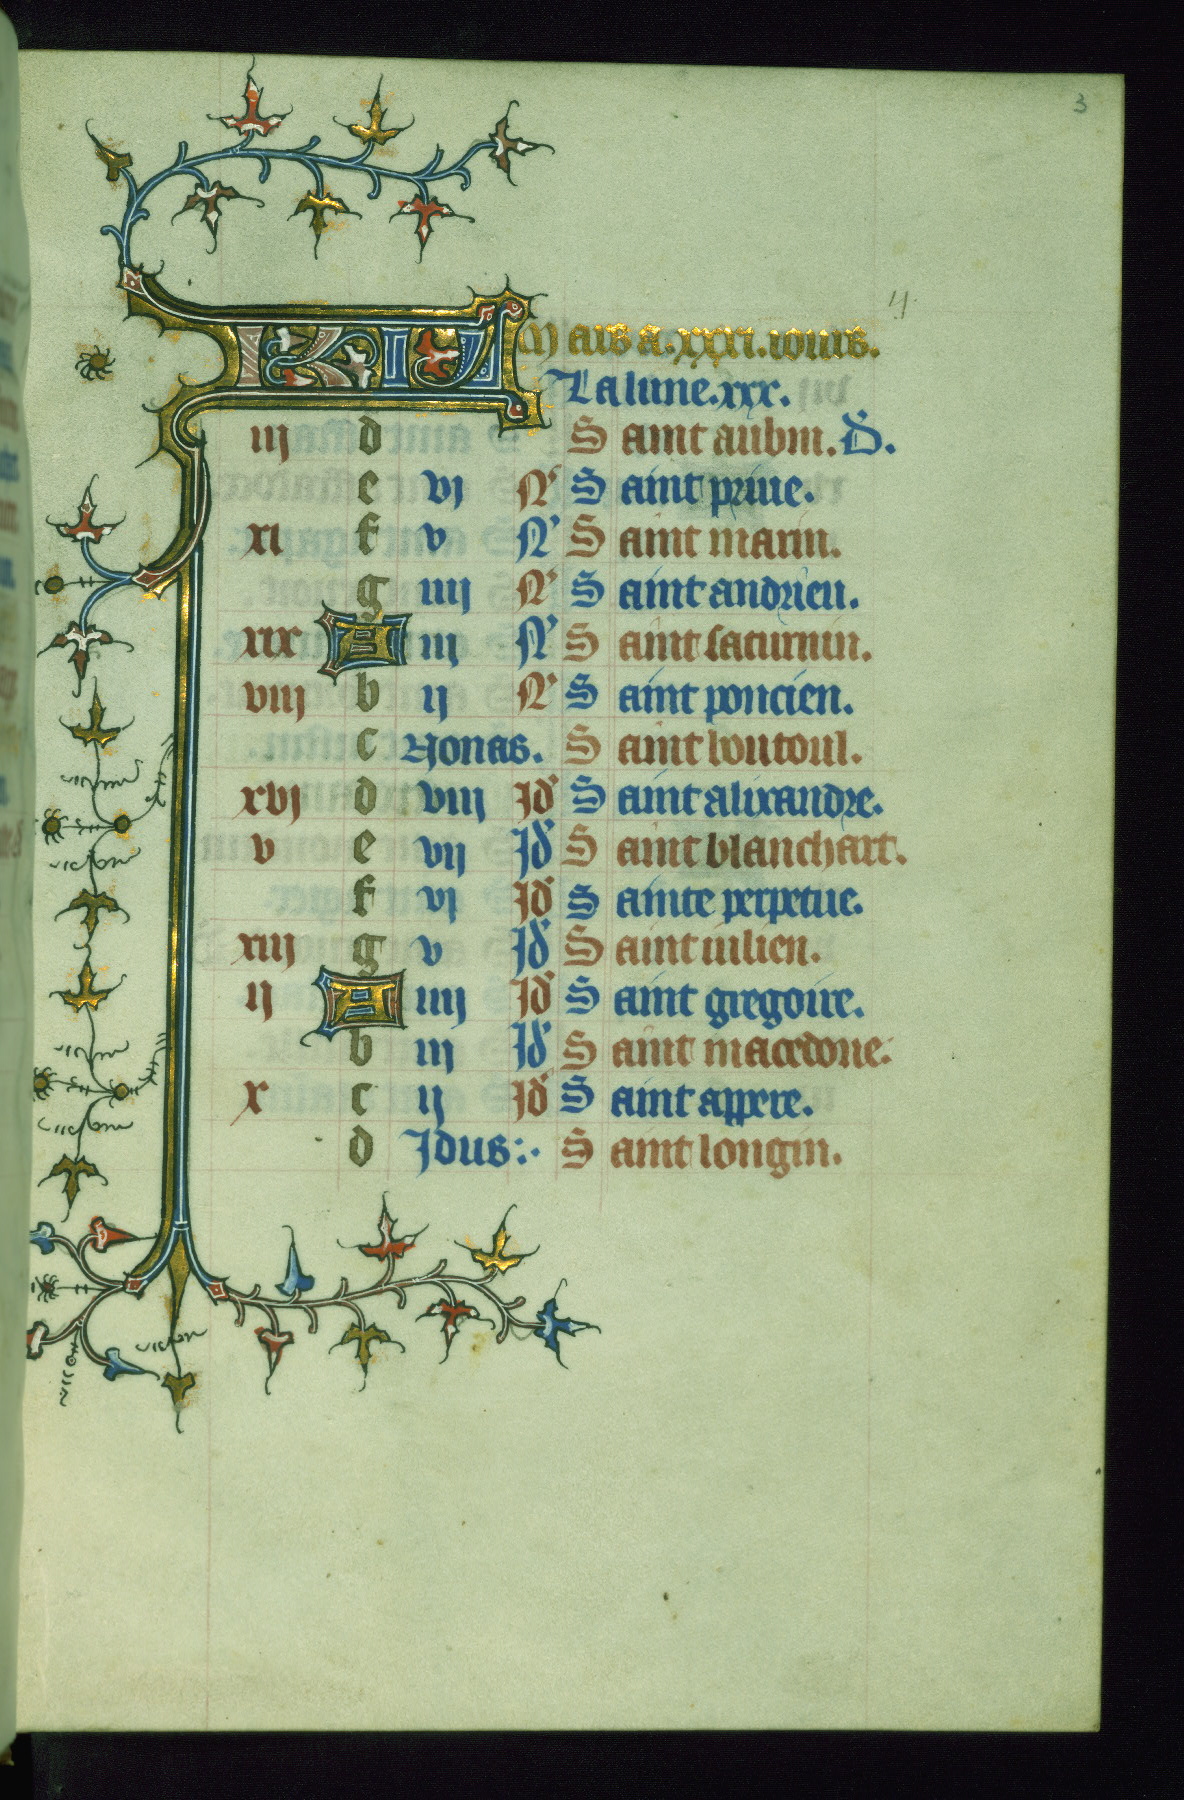 3
KL Mars a .xxxi. iours.
La lune .xxx.
iij d Saint aubin. D.
e vj N' Saint priue.
xi f v N' Saint marin.
g iiij N' Saint andrieu.
xix A iij N' Saint saturnin.
viij b ij N' Saint poncien.
c Nonas. Saint boutoul.
xvj d viij Id' Saint alixandre.
v e vij Id' Saint blanchart.
f vj Id' Sainte perpetue.
xiij g v Id' Saint iulien.
ij A iiij Id' Saint gregoire.
b iij Id' Saint macedone.
x c ij Id' Saint appere.
d Idus Saint longin.